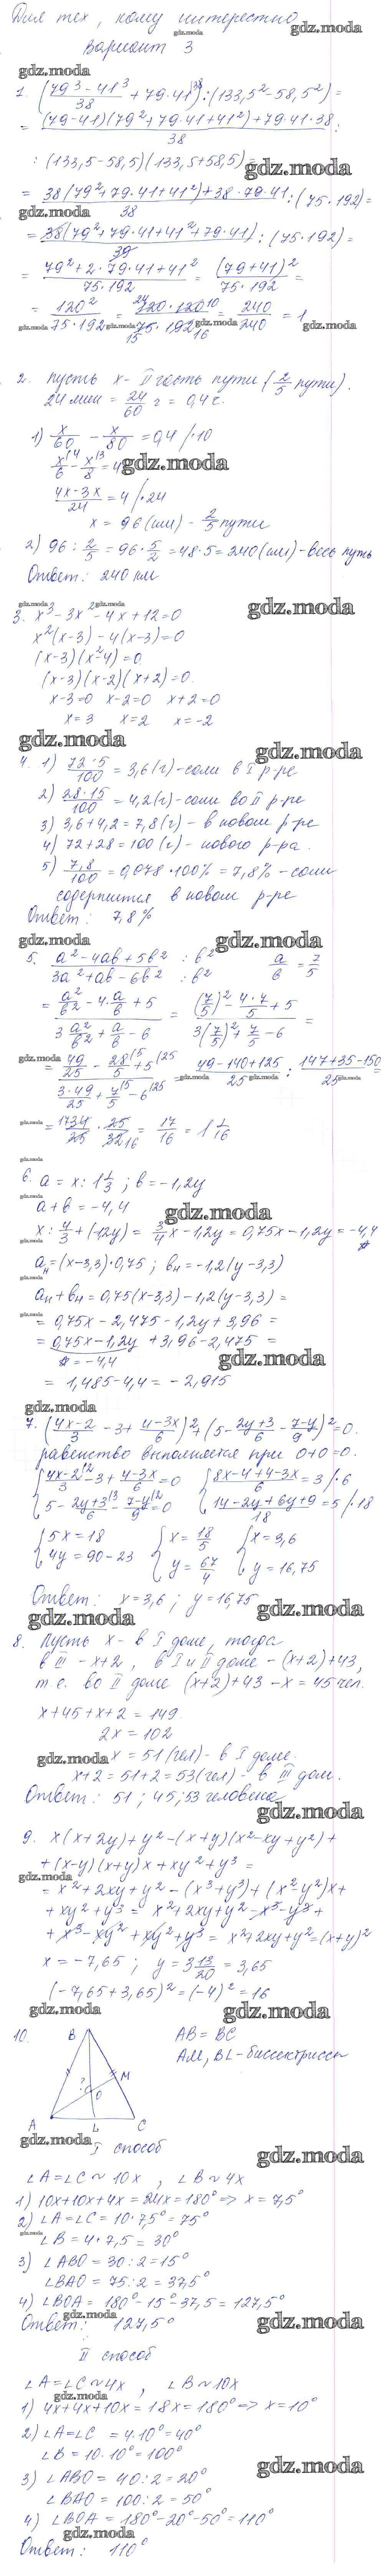 Для тех, кому интересно
Вариант 3
1. (79³ - 41³/38 + 79·41^(38) : (133,5² - 58,5²) =
= (79-41)(79²+79·41+41²)+79·41·38/38 :
: (133,5-58,5)(133,5+58,5) =
= 38(79²+79·41+41²)+38·79·41/38 : (75·192) =
= 38(79²+79·41+41²+79·41)/39 : (75·192) =
= 79²+2·79·41+41²/75·192 = (79+41)²/75·192 =
= 120²/75·192 = 120·120/75·192 = 240/240 = 1
2. Пусть x - II часть пути (2/5 пути).
24 мин = 24/60 г = 0,4 г.
1) x/60 - x/80 = 0,4 /·10
x/6 - x/8 = 4
4x-3x/24 = 4 /·24
x = 96 (км) - 2/5 пути
2) 96 : 2/5 = 96·5/2 = 48·5 = 240 (км) - весь путь
Ответ: 240 км
3. x³ - 3x² - 4x + 12 = 0
x²(x-3) - 4(x-3) = 0
(x-3)(x²-4) = 0
(x-3)(x-2)(x+2) = 0
x-3=0 x-2=0 x+2=0
x=3 x=2 x=-2
4. 1) 72·5/100 = 3,6 (г) - соли в I р-ре
2) 28·15/100 = 4,2 (г) - соли во II р-ре
3) 3,6+4,2=7,8 (г) - в новом р-ре
4) 72+28=100 (г) - нового р-ра.
5) 7,8/100 = 0,078·100% = 7,8% - соли
содержится в новом р-ре
Ответ: 7,8%
5. a²-4ab+5b²/3a²+ab-6b² :b² :b² a/b = 7/5
= a²/b² - 4·a/b + 5/3 a²/b² + a/b - 6 = (7/5)² - 4·7/5 + 5/3(7/5)² + 7/5 - 6 =
= 49/25 - 28/5 + 5/3·49/25 + 7/5 - 6 = 49-140+125/25 : 147+35-150/25 =
= 1734/25 · 25/32 16 = 17/16 = 1 1/16
6. a = x : 1 1/3 ; b = -1,2y
a+b = -4,4
x : 4/3 + (-12y) = 3/4 x - 1,2y = 0,75x - 1,2y = -4,4
aн = (x-3,3)·0,75 ; bн = -1,2(y-3,3)
aн+bн = 0,75(x-3,3) - 1,2(y-3,3) =
= 0,75x - 2,475 - 1,2y + 3,96 =
= 0,75x - 1,2y + 3,96 - 2,475 =
= -4,4
= 1,485 - 4,4 = -2,915
7. (4x-2/3 - 3 + 4-3x/6)² + (5 - 2y+3/6 - 7-y/9)² = 0.
равенство выполняется при 0+0=0.
{4x-2/3 - 3 + 4-3x/6 = 0 {8x-4+4-3x/6 = 3 /·6
5 - 2y+3/6 - 7-y/9 = 0 14-2y+6y+9/18 = 5 /·18
{5x = 18 {x = 18/5 {x = 3,6
4y = 90-23 y = 67/4 y = 16,75
Ответ: x = 3,6 ; y = 16,75
8. Пусть x - в I доме, тогда
в III - x+2, в I и II доме - (x+2)+43,
т.е. во II доме (x+2)+43-x = 45 чел.
x+45+x+2 = 149
2x = 102
x = 51 (чел) - в I доме.
x+2 = 51+2 = 53 (чел) - в III дом.
Ответ: 51 ; 45 ; 53 человека
9. x(x+2y)+y²-(x+y)(x²-xy+y²)+
+(x-y)(x+y)x+xy²+y³ =
= x²+2xy+y²-(x³+y³)+(x²-y²)x+
+xy²+y³ = x²+2xy+y²-x³-y³+
+x³-xy²+xy²+y³ = x²+2xy+y² = (x+y)²
x = -7,65 ; y = 3 13/20 = 3,65
(-7,65+3,65)² = (-4)² = 16
10. B AB = BC
AM, BL - биссектрисы
M
?
O
A L C
I способ
∠A=∠C ~ 10x , ∠B ~ 4x
1) 10x+10x+4x=24x=180° => x = 7,5°
2) ∠A=∠C = 10·7,5° = 75°
∠B = 4·7,5 = 30°
3) ∠ABO = 30:2 = 15°
∠BAO = 75:2 = 37,5°
4) ∠BOA = 180°-15°-37,5 = 127,5°
Ответ: 127,5°
II способ
∠A=∠C ~ 4x , ∠B ~ 10x
1) 4x+4x+10x = 18x = 180° => x = 10°
2) ∠A=∠C = 4·10° = 40°
∠B = 10·10° = 100°
3) ∠ABO = 40:2 = 20°
∠BAO = 100:2 = 50°
4) ∠BOA = 180°-20°-50° = 110°
Ответ: 110°